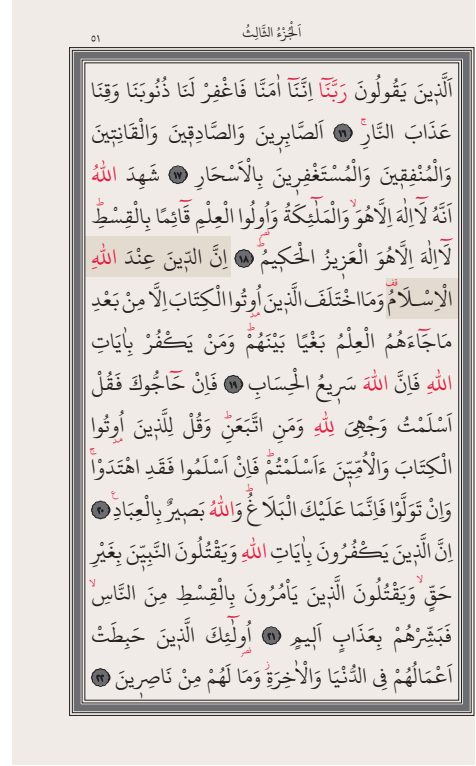 اَلْجُزْءُ الثَّالِثُ
٥١
اَلَّذ۪ينَ يَقُولُونَ رَبَّنَٓا اِنَّنَٓا اٰمَنَّا فَاغْفِرْ لَنَا ذُنُوبَنَا وَقِنَا
عَذَابَ النَّارِۚ ﴿١٦﴾ اَلصَّابِر۪ينَ وَالصَّادِق۪ينَ وَالْقَانِت۪ينَ
وَالْمُنْفِق۪ينَ وَالْمُسْتَغْفِر۪ينَ بِالْاَسْحَارِ ﴿١٧﴾ شَهِدَ اللّٰهُ
اَنَّهُ لَٓا اِلٰهَ اِلَّا هُوَۙ وَالْمَلٰٓئِكَةُ وَاُولُوا الْعِلْمِ قَٓائِمًا بِالْقِسْطِۜ
لَٓا اِلٰهَ اِلَّا هُوَ الْعَز۪يزُ الْحَك۪يمُۜ ﴿١٨﴾ اِنَّ الدّ۪ينَ عِنْدَ اللّٰهِ
الْاِسْلَامُ۠ وَمَا اخْتَلَفَ الَّذ۪ينَ اُو۫تُوا الْكِتَابَ اِلَّا مِنْ بَعْدِ
مَا جَٓاءَهُمُ الْعِلْمُ بَغْيًا بَيْنَهُمْۜ وَمَنْ يَكْفُرْ بِاٰيَاتِ
اللّٰهِ فَاِنَّ اللّٰهَ سَر۪يعُ الْحِسَابِ ﴿١٩﴾ فَاِنْ حَٓاجُّوكَ فَقُلْ
اَسْلَمْتُ وَجْهِيَ لِلّٰهِ وَمَنِ اتَّبَعَنِۜ وَقُلْ لِلَّذ۪ينَ اُو۫تُوا
الْكِتَابَ وَالْاُمِّيّ۪نَ ءَاَسْلَمْتُمْۜ فَاِنْ اَسْلَمُوا فَقَدِ اهْتَدَوْاۚ
وَاِنْ تَوَلَّوْا فَاِنَّمَا عَلَيْكَ الْبَلَاغُۜ وَاللّٰهُ بَص۪يرٌ بِالْعِبَادِ۟ ﴿٢٠﴾
اِنَّ الَّذ۪ينَ يَكْفُرُونَ بِاٰيَاتِ اللّٰهِ وَيَقْتُلُونَ النَّبِيّ۪نَ بِغَيْرِ
حَقٍّۙ وَيَقْتُلُونَ الَّذ۪ينَ يَأْمُرُونَ بِالْقِسْطِ مِنَ النَّاسِۙ
فَبَشِّرْهُمْ بِعَذَابٍ اَل۪يمٍ ﴿٢١﴾ اُو۬لٰٓئِكَ الَّذ۪ينَ حَبِطَتْ
اَعْمَالُهُمْ فِي الدُّنْيَا وَالْاٰخِرَةِۘ وَمَا لَهُمْ مِنْ نَاصِر۪ينَ ﴿٢٢﴾